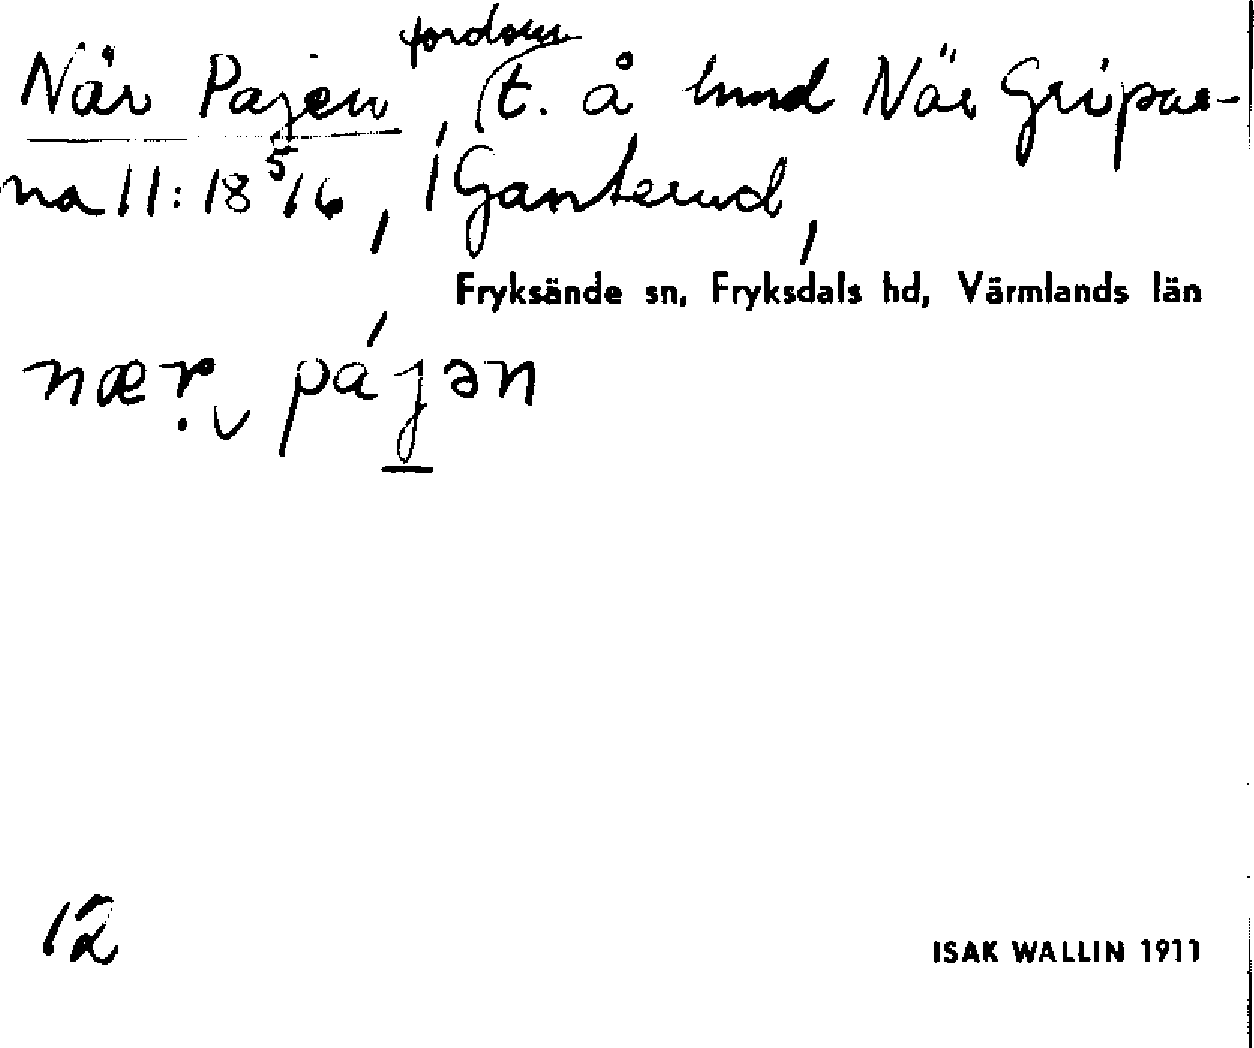 När Pajen, fordom t. å lmd När Gripar-
na 11:18 5/16, i Ganterud,
Fryksände sn, Fryksdals hd, Värmlands län
nær. pájən
12
ISAK WALLIN 1911